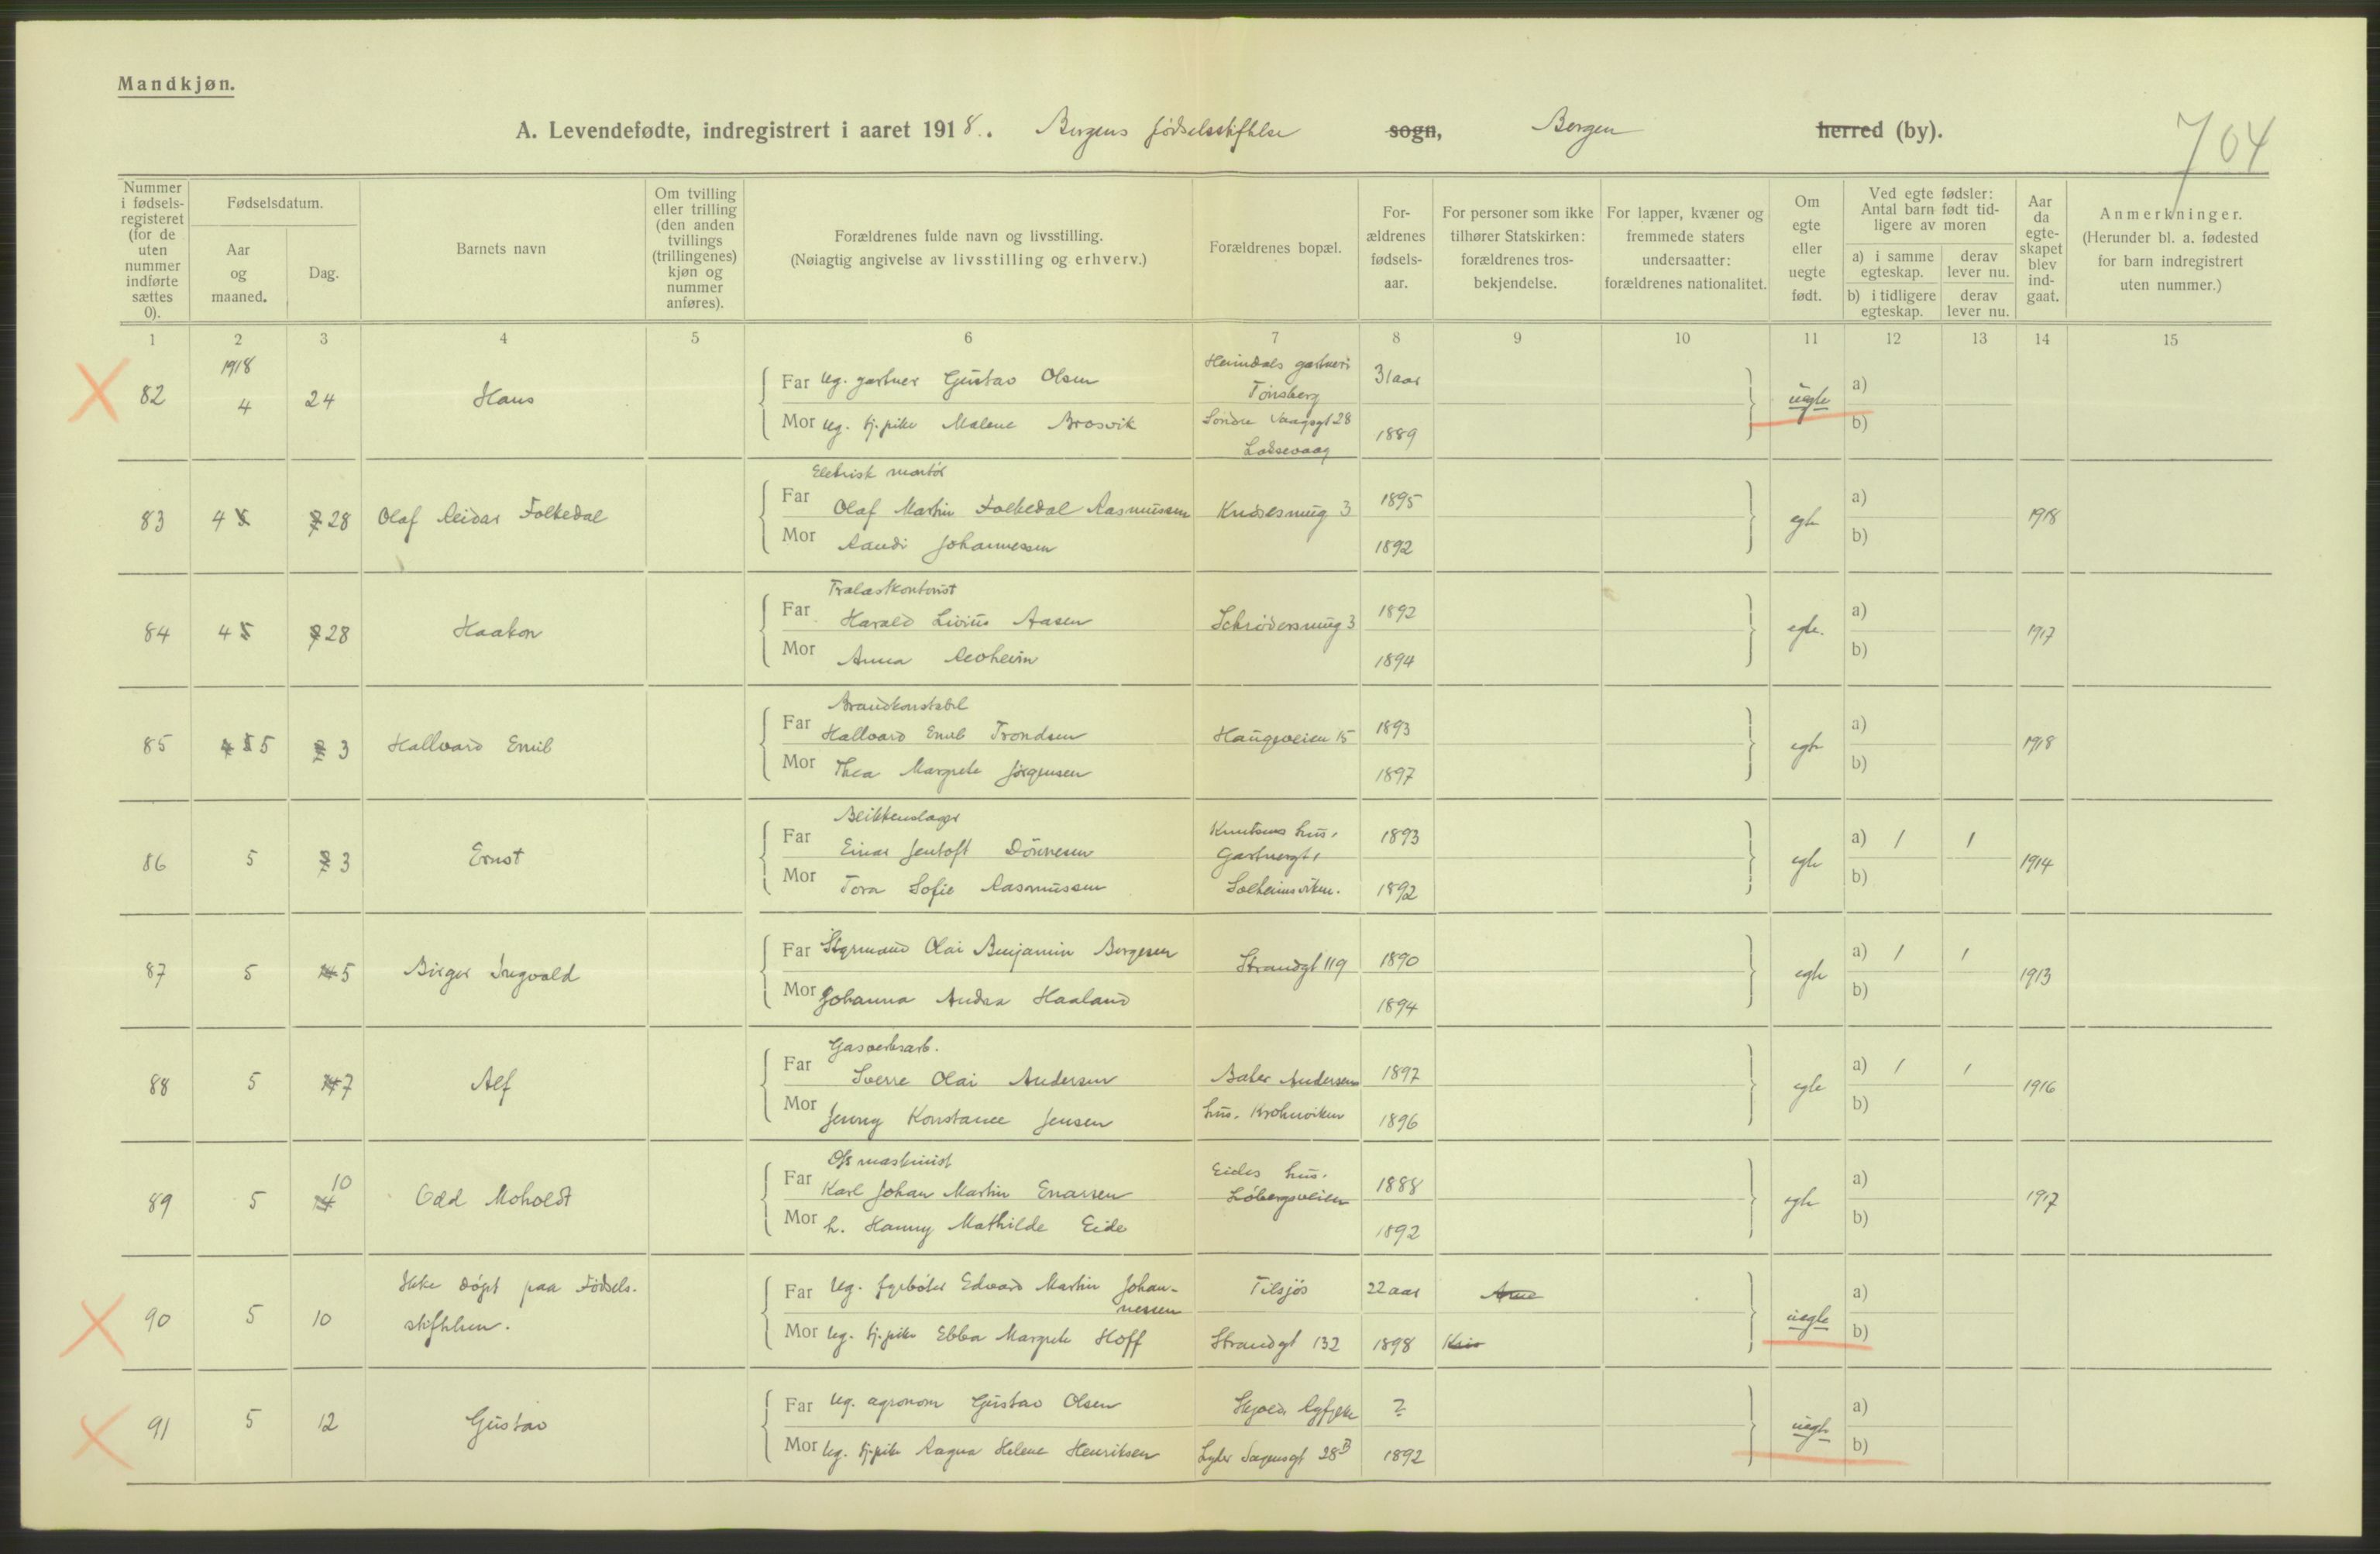 Mandkjøn.
A. Levendefødte, indregistrert i aaret 1918. Bergens fødselsstiftelse sogn, Bergen herred (by).
704
Nummer i fødsels-registeret (for de uten nummer indførte sættes 0).
Fødselsdatum.
Aar og maaned.
Dag.
Barnets navn
Om tvilling eller trilling (den anden tvillings (trillingenes) kjøn og nummer anføres).
Forældrenes fulde navn og livsstilling.
(Nøiagtig angivelse av livsstilling og erhverv.)
Forældrenes bopæl.
For-ældrenes fødsels-aar.
For personer som ikke tilhører Statskirken: forældrenes tros-bekjendelse.
For lapper, kvæner og fremmede staters undersaatter: forældrenes nationalitet.
Om egte eller uegte født.
Ved egte fødsler: Antal barn født tid-ligere av moren
a) i samme egteskap.
derav lever nu.
b) i tidligere egteskap.
derav lever nu.
Aar da egte-skapet blev ind-gaat.
Anmerkninger.
(Herunder bl. a. fødested for barn indregistrert uten nummer.)
1 2 3 4 5 6 7 8 9 10 11 12 13 14 15
1918
82 4 24 Hans
Far Ug. gartner Gustav Olsen Heimdals gartneri Tønsberg 31 aar
Mor ug. tj.pike Malene Brosvik Søndre Vaagsgt 28 Laksevaag 1889
uegte a) b)
83 4 5 28 Olaf Reidar Folkedal
Elektrisk montør
Far Olaf Martin Folkedal Rasmussen Knøsesmug 3 1895
Mor Randi Johannessen 1892
egte a) b) 1918
84 4 5 28 Haakon
Trælastkontorist
Far Harald Livius Aasen Schrødersmug 3 1892
Mor Anna Reoheim 1894
egte. a) b) 1917
85 4 5 5 3 Hallvard Emil
Brandkonstabel
Far Hallvard Emil Trondsen Haugeveien 15 1893
Mor Thea Margrete Jørgensen 1897
egte a) b) 1918
86 5 3 Ernst
Blikkenslager
Far Einar Jentoft Dønnesen Knutsens hus, Gartnergt, 1893
Mor Tora Sofie Rasmussen Solheimsviken. 1892
egte a) 1 1 b) 1914
87 5 5 Birger Ingvald
Far Styrmand Olai Benjamin Borgesen Strandgt 119 1890
Mor Johanna Andrea Haaland 1894
egte a) 1 1 b) 1913
88 5 14 7 Alf
Gasverksarb.
Far Sverre Olai Andersen Baker Andersens 1897
Mor Jenny Konstance Jensen hus. Krohnviken 1896
egte a) 1 1 b) 1916
89 5 14 10 Odd Moholdt
Far Karl Johan Martin Enarsen Eides hus, Løbergsveien 1888
Mor h. Hanny Mathilde Eide 1892
egte a) b) 1917
90 5 10 Ikke døpt paa Fødsels-stiftelsen.
Far Ug. fyrbøter Edvard Martin Johan-nessen Tilsjøs 22 aar
Mor Ug. tj.pike Ebba Margrete Hoff Strandgt 132 1898
uegte a) b)
91 5 12 Gustav
Far Ug. agronom Gustav Olsen Skjold, Ryfylke ?
Mor Ug. tj.pike Ragna Helene Henriksen Lyder Sagensgt 28B 1892
uegte a) b)